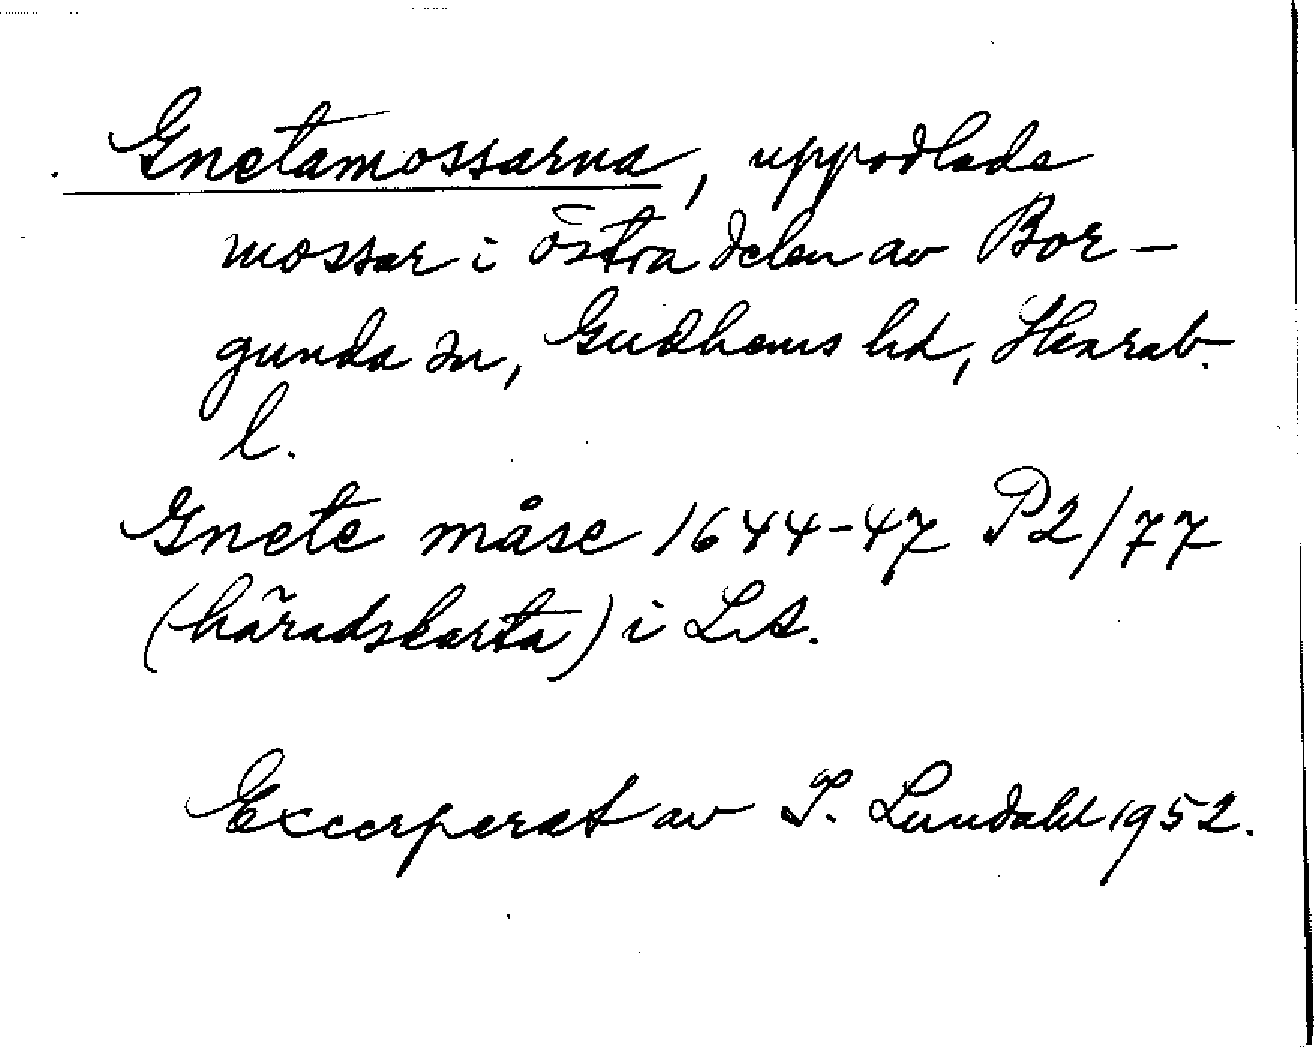 Gnetamossarna, uppodlade
mossar i östra delen av Bor-
gunda sn, Gudhems hd, Skarab.
l.
Gnete måse 1644-47 P2/77
(häradskarta) i LA.
Excerperat av I. Lundahl 1952.